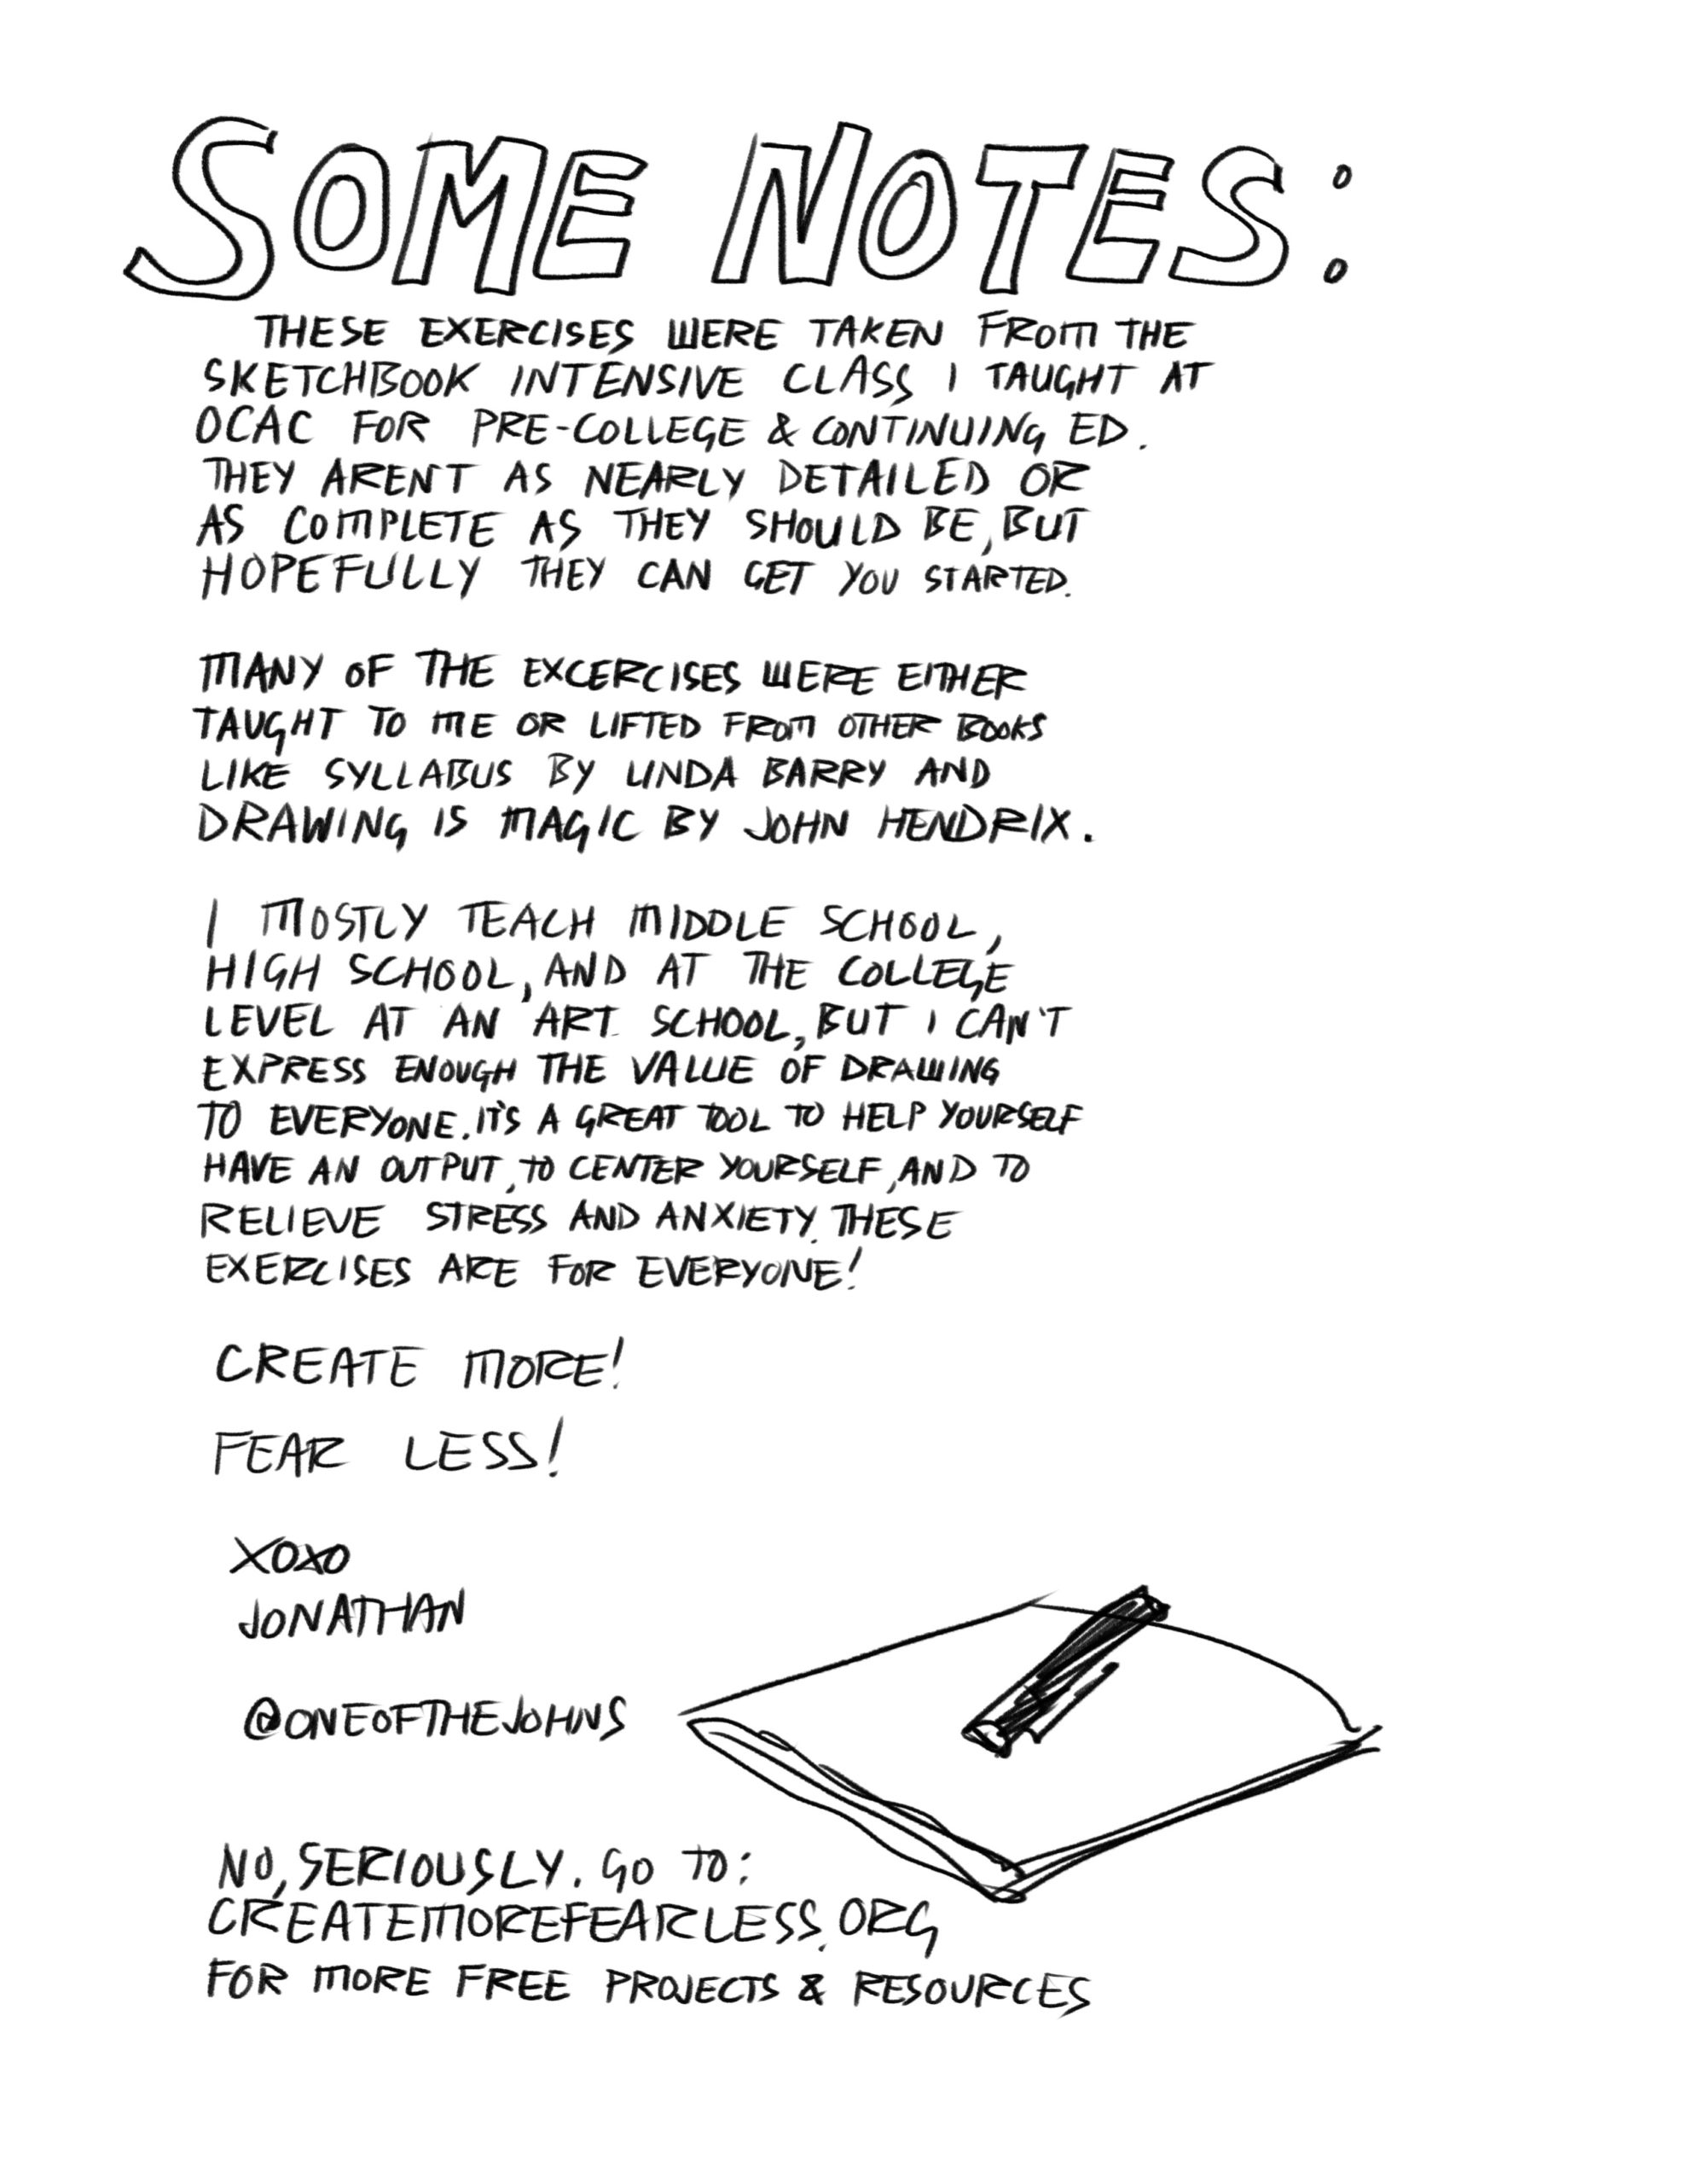 SOME NOTES:
THESE EXERCISES WERE TAKEN FROM THE
SKETCHBOOK INTENSIVE CLASS I TAUGHT AT
OCAC FOR PRE-COLLEGE & CONTINUING ED.
THEY ARENT AS NEARLY DETAILED OR
AS COMPLETE AS THEY SHOULD BE, BUT
HOPEFULLY THEY CAN GET YOU STARTED.
MANY OF THE EXCERCISES WERE EITHER
TAUGHT TO ME OR LIFTED FROM OTHER BOOKS
LIKE SYLLABUS BY LINDA BARRY AND
DRAWING IS MAGIC BY JOHN HENDRIX.
I MOSTLY TEACH MIDDLE SCHOOL,
HIGH SCHOOL, AND AT THE COLLEGE
LEVEL AT AN ART SCHOOL, BUT I CAN'T
EXPRESS ENOUGH THE VALUE OF DRAWING
TO EVERYONE. IT'S A GREAT TOOL TO HELP YOURSELF
HAVE AN OUTPUT, TO CENTER YOURSELF, AND TO
RELIEVE STRESS AND ANXIETY. THESE
EXERCISES ARE FOR EVERYONE!
CREATE MORE!
FEAR LESS!
XOXO
JONATHAN
@ONEOFTHEJOHNS
NO, SERIOUSLY. GO TO:
CREATEMOREFEARLESS.ORG
FOR MORE FREE PROJECTS & RESOURCES